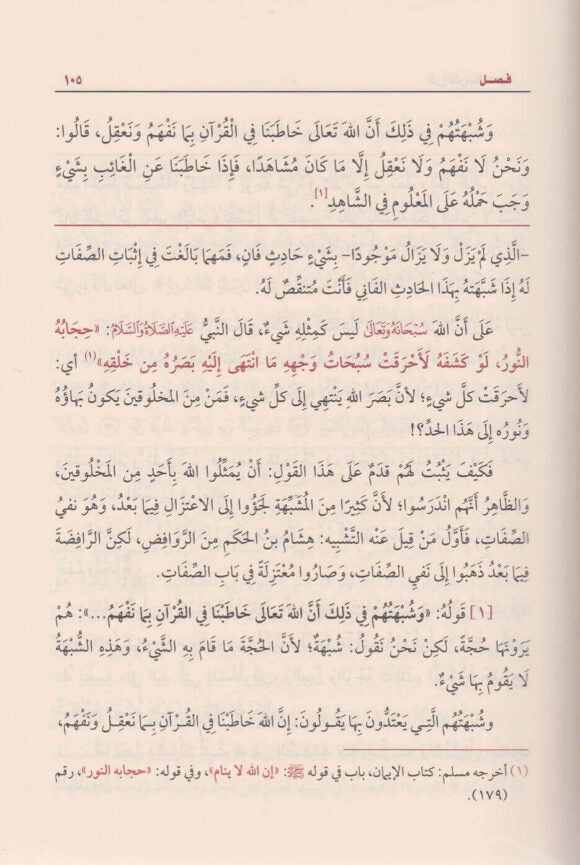 فصل ١٠٥
وَشُبْهَتُهُمْ فِي ذَلِكَ أَنَّ اللهَ تَعَالَى خَاطَبَنَا فِي القُرْآنِ بِمَا نَفْهَمُ وَنَعْقِلُ، قَالُوا:
وَنَحْنُ لَا نَفْهَمُ وَلَا نَعْقِلُ إِلَّا مَا كَانَ مُشَاهَدًا، فَإِذَا خَاطَبَنَا عَنِ الْغَائِبِ بِشَيْءٍ
وَجَبَ حَمْلُهُ عَلَى الْمَعْلُومِ فِي الشَّاهِدِ[١].
-الَّذِي لَمْ يَزَلْ وَلَا يَزَالُ مَوْجُودًا- بِشَيْءٍ حَادِثٍ فَانٍ، فَمَهْمَا بَالَغْتَ فِي إِثْبَاتِ الصِّفَاتِ
لَهُ إِذَا شَبَّهْتَهُ بِهَذَا الحَادِثِ الفَانِي فَأَنْتَ مُتَنَقِّصٌ لَهُ.
عَلَى أَنَّ اللهَ سُبْحَانَهُ وَتَعَالَى لَيْسَ كَمِثْلِهِ شَيْءٌ، قَالَ النَّبِيُّ عَلَيْهِ الصَّلَاةُ وَالسَّلَامُ: «حِجَابُهُ
النُّورُ، لَوْ كَشَفَهُ لَأَحْرَقَتْ سُبُحَاتُ وَجْهِهِ مَا انْتَهَى إِلَيْهِ بَصَرُهُ مِن خَلْقِهِ»(١) أي:
لَأَحْرَقَتْ كُلَّ شيءٍ؛ لأنَّ بَصَرَ اللهِ يَنْتَهِي إِلَى كلِّ شيءٍ، فَمَنْ مِنَ المخلُوقينَ يَكونُ بهَاؤُهُ
وَنُورُه إِلَى هَذَا الحدِّ؟!
فَكَيْفَ يَثْبُتُ لهُمْ قدَمٌ عَلَى هَذَا القَوْلِ: أَنْ يُمَثِّلُوا اللهَ بأَحدٍ مِنَ المَخْلُوقينَ،
وَالظَّاهِرُ أَنَّهُم انْدَرَسُوا؛ لأنَّ كَثيرًا مِنَ المُشَبِّهَةِ لَجَؤُوا إِلَى الاعْتزَالِ فِيمَا بَعْدُ، وَهُوَ نفيُ
الصِّفَاتِ، فَأَوَّلُ مَنْ قِيلَ عَنْه التَّشْبِيه: هِشَامُ بنُ الحَكَمِ مِنَ الرَّوَافِضِ، لَكِنَّ الرَّافِضَةَ
فِيمَا بَعدُ ذَهَبُوا إِلَى نَفيِ الصِّفَاتِ، وَصَارُوا مُعْتزِلَةً فِي بَابِ الصِّفَاتِ.
[١] قَولُهُ: «وَشُبْهَتُهُمْ فِي ذَلِكَ أَنَّ اللهَ تَعَالَى خَاطَبَنَا فِي القُرْآنِ بِمَا نَفْهَمُ...»: هُمْ
يَرَوْنَهَا حُجَّةً، لَكِنْ نَحْنُ نَقُولُ: شُبهَةٌ؛ لأنَّ الحُجَّةَ مَا قَامَ بِهِ الشَّيْءُ، وَهَذِهِ الشُّبْهَةُ
لَا يَقُومُ بِهَا شَيْءٌ.
وَشُبْهَتُهُم الَّتِي يَعْتَدُّونَ بِهَا يَقُولُونَ: إِنَّ اللهَ خَاطَبَنَا فِي القُرْآنِ بِمَا نَعْقِلُ وَنَفْهَمُ،
(١) أخرجه مسلم: كتاب الإيمان، باب في قوله ﷺ: «إن الله لا ينام»، وفي قوله: «حجابه النور»، رقم
(١٧٩).